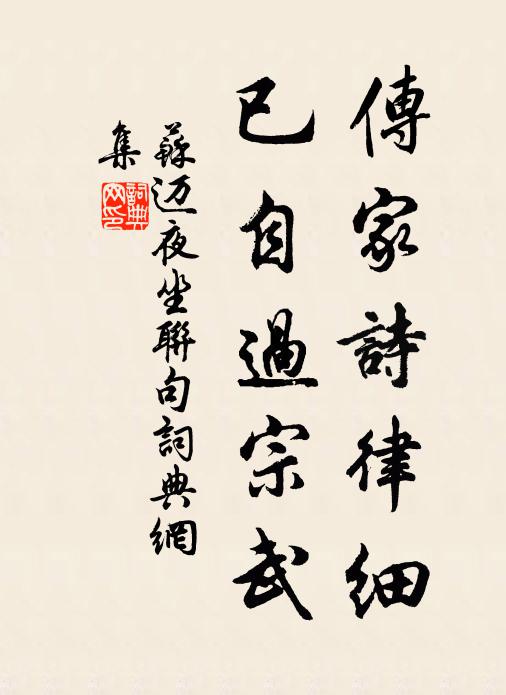 傳家詩律細
已自過宗武
蘇迈夜坐聯句詞典網
集
詞典
网印